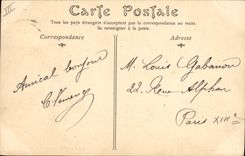 III
Carte Postale
Tous les pays étrangers n'acceptent pas la correspondance au recto.
Se renseigner à la poste.
Correspondance
Adresse
Amical bonjour
M. Louis Gabanou
22, Rue Alphan
Paris XIIIe